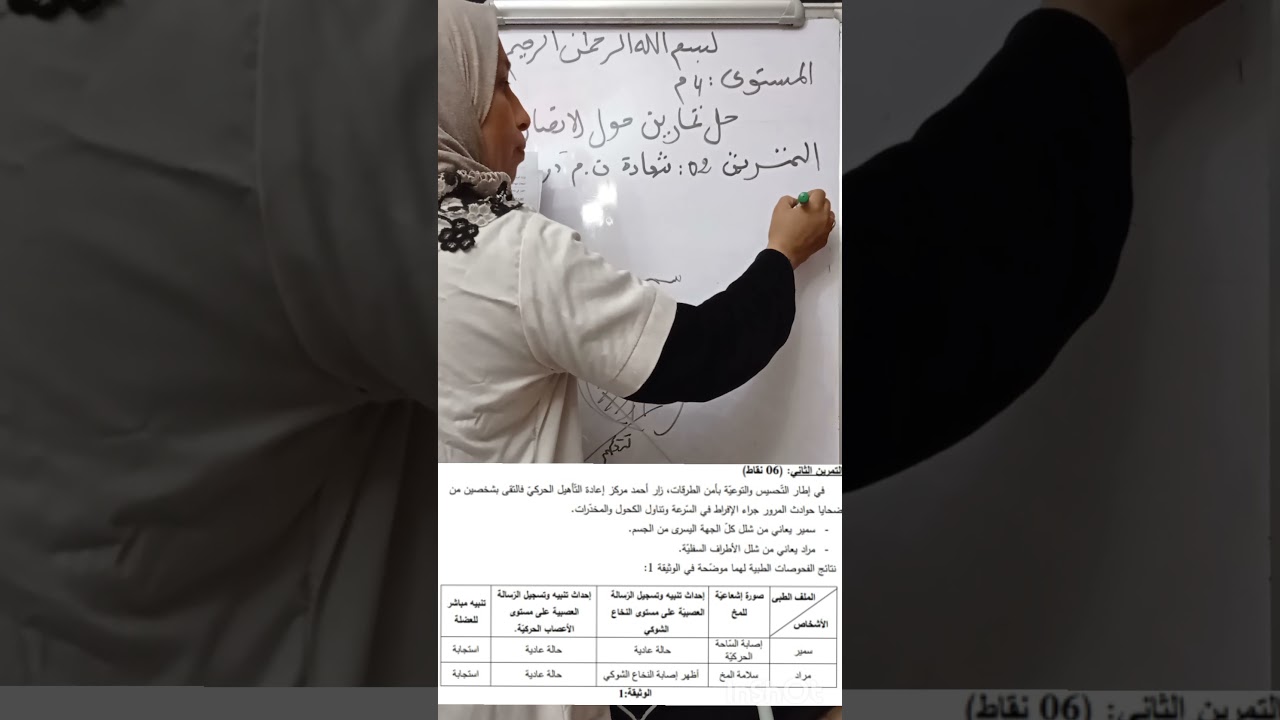 بسم الله الرحمان الرحيم
المستوى : 4 م
حل تمارين حول الاتصا
التمرين 02 : شهادة ت.م
تتحكم
التمرين الثاني: (06 نقاط)
في إطار التّحسيس والتوعيّة بأمن الطرقات، زار أحمد مركز إعادة التّأهيل الحركيّ فالتقى بشخصين من
ضحايا حوادث المرور جراء الإفراط في السّرعة وتناول الكحول والمخدّرات.
- سمير يعاني من شلل كلّ الجهة اليسرى من الجسم.
- مراد يعاني من شلل الأطراف السفليّة.
نتائج الفحوصات الطبية لهما موضّحة في الوثيقة 1:
الملف الطبي الأشخاص | صورة إشعاعيّة للمخ | إحداث تنبيه وتسجيل الرّسالة العصبيّة على مستوى النخاع الشوكي | إحداث تنبيه وتسجيل الرّسالة العصبية على مستوى الأعصاب الحركيّة. | تنبيه مباشر للعضلة
سمير | إصابة السّاحة الحركيّة | حالة عادية | حالة عادية | استجابة
مراد | سلامة المخ | أظهر إصابة النخاع الشوكي | حالة عادية | استجابة
الوثيقة:1
التمرين الثاني: (06 نقاط)